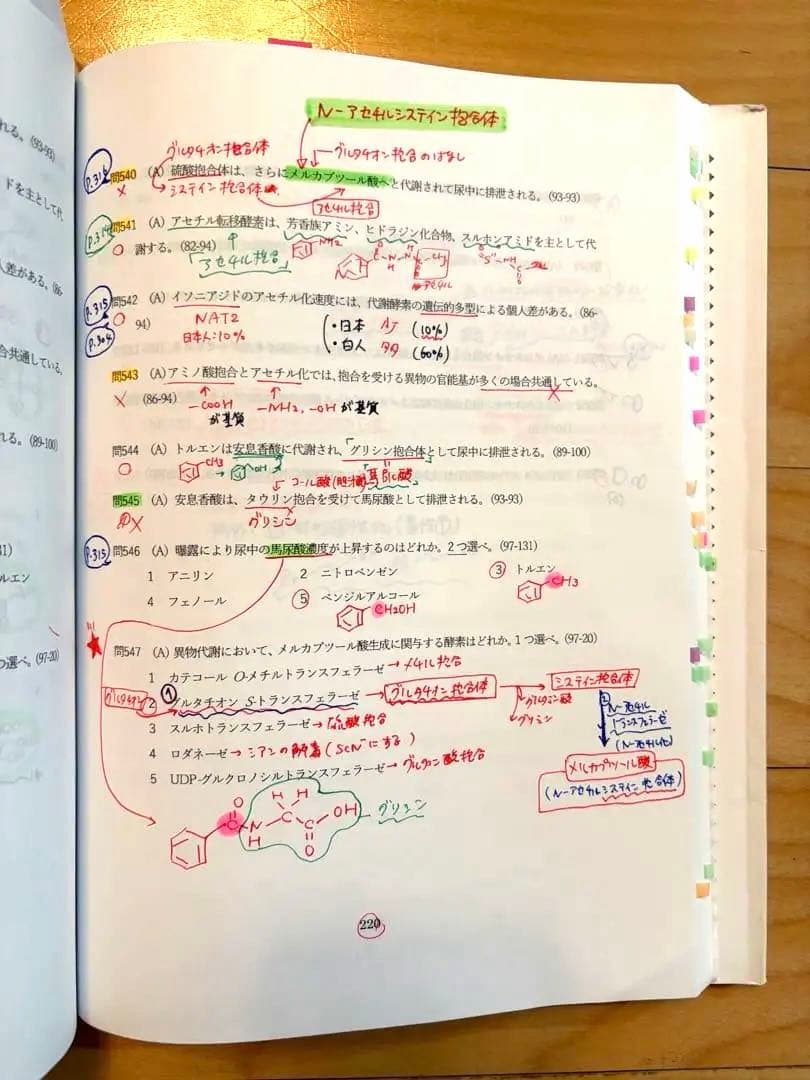 N-アセチルシステイン抱合体
グルタチオン抱合体
グルタチオン抱合のはなし
P.316
問540 (A) 硫酸抱合体は、さらにメルカプツール酸へと代謝されて尿中に排泄される。(93-93)
× システイン抱合体
アセチル抱合
P.314
問541 (A) アセチル転移酵素は、芳香族アミン、ヒドラジン化合物、スルホンアミドを主として代
謝する。(82-94)
「アセチル抱合」
NH2
アセチル
P.315
問542 (A) イソニアジドのアセチル化速度には、代謝酵素の遺伝的多型による個人差がある。(86-
94)
P.304
NAT2
日本人:10%
・日本 (10%)
・白人 (60%)
問543 (A) アミノ酸抱合とアセチル化では、抱合を受ける異物の官能基が多くの場合共通している。
× (86-94)
-COOH が基質
-NH2, -OH が基質
問544 (A) トルエンは安息香酸に代謝され、グリシン抱合体として尿中に排泄される。(89-100)
CH3
OH
馬尿酸
コール酸(胆汁酸)
問545 (A) 安息香酸は、タウリン抱合を受けて馬尿酸として排泄される。(93-93)
× グリシン
P.315
問546 (A) 曝露により尿中の馬尿酸濃度が上昇するのはどれか。2つ選べ。(97-131)
1 アニリン 2 ニトロベンゼン 3 トルエン
CH3
4 フェノール 5 ベンジルアルコール
CH2OH
問547 (A) 異物代謝において、メルカプツール酸生成に関与する酵素はどれか。1つ選べ。(97-20)
1 カテコール O-メチルトランスフェラーゼ→メチル抱合
グルタチオン
2 グルタチオン S-トランスフェラーゼ→グルタチオン抱合体 → システイン抱合体
①
グルタミン酸
グリシン
② N-アセチル
トランスフェラーゼ
(N-アセチル化)
3 スルホトランスフェラーゼ→硫酸抱合
4 ロダネーゼ→シアンの解毒(SCN⁻にする)
5 UDP-グルクロノシルトランスフェラーゼ→グルクロン酸抱合
メルカプツール酸
(N-アセチルシステイン抱合体)
O H H
C N C C OH
H O
グリシン
220